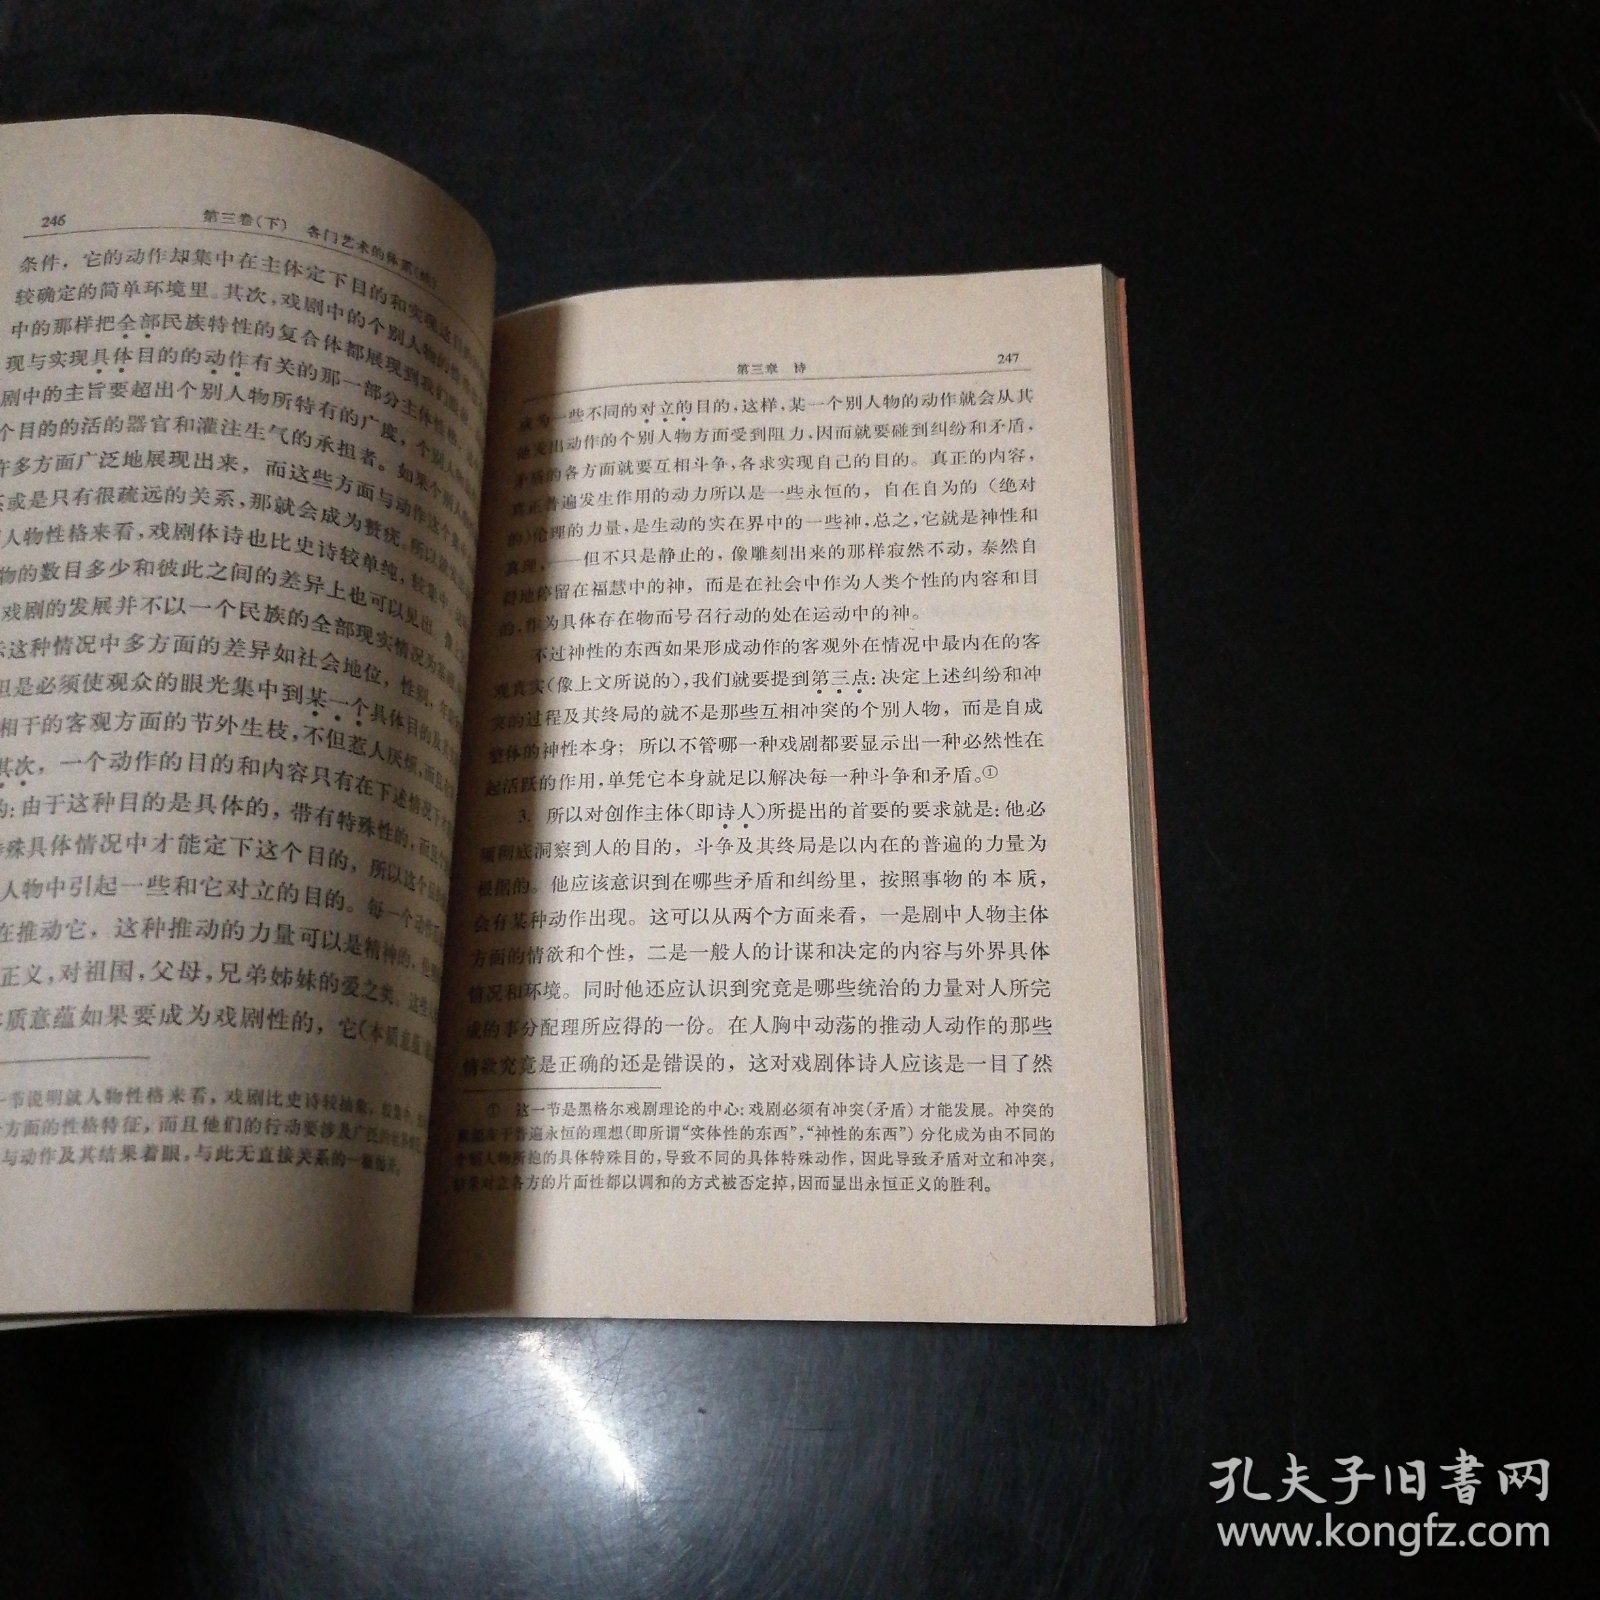 246
第三卷(下) 各门艺术的体系(续)
条件，它的动作却集中在主体定下目的和实现这
较确定的简单环境里。其次，戏剧中的个别人物的
中的那样把全部民族特性的复合体都展现到我们
现与实现具体目的的动作有关的那一部分主体性格
剧中的主旨要超出个别人物所特有的广度，个别人物
个目的的活的器官和灌注生气的承担者。如果个别人物
许多方面广泛地展现出来，而这些方面与动作这个
或是只有很疏远的关系，那就会成为赘疣。所以
人物性格来看，戏剧体诗也比史诗较单纯，较集中
物的数目多少和彼此之间的差异上也可以见出。像
戏剧的发展并不以一个民族的全部现实情况为
这种情况中多方面的差异如社会地位，性别，年
但是必须使观众的眼光集中到某一个具体目的及
相干的客观方面的节外生枝，不但惹人厌烦，而且
其次，一个动作的目的和内容只有在下述情况下
的：由于这种目的是具体的，带有特殊性的，而且
特殊具体情况中才能定下这个目的，所以这个
人物中引起一些和它对立的目的。每一个动作
在推动它，这种推动的力量可以是精神的，
正义，对祖国，父母，兄弟姊妹的爱之类。这些
质意蕴如果要成为戏剧性的，它(本质意蕴
一节说明就人物性格来看，戏剧比史诗较抽象，较集中，
方面的性格特征，而且他们的行动要涉及广泛的
与动作及其结果着眼，与此无直接关系的一概抛开。
第三章 诗
247
成为一些不同的对立的目的，这样，某一个别人物的动作就会从其
他发出动作的个别人物方面受到阻力，因而就要碰到纠纷和矛盾，
矛盾的各方面就要互相斗争，各求实现自己的目的。真正的内容，
真正普遍发生作用的动力所以是一些永恒的，自在自为的（绝对
的)伦理的力量，是生动的实在界中的一些神，总之，它就是神性和
真理，——但不只是静止的，像雕刻出来的那样寂然不动，泰然自
得地停留在福慧中的神，而是在社会中作为人类个性的内容和目
的，作为具体存在物而号召行动的处在运动中的神。
不过神性的东西如果形成动作的客观外在情况中最内在的客
观真实(像上文所说的)，我们就要提到第三点：决定上述纠纷和冲
突的过程及其终局的就不是那些互相冲突的个别人物，而是自成
整体的神性本身；所以不管哪一种戏剧都要显示出一种必然性在
起活跃的作用，单凭它本身就足以解决每一种斗争和矛盾。①
3. 所以对创作主体(即诗人)所提出的首要的要求就是：他必
须彻底洞察到人的目的，斗争及其终局是以内在的普遍的力量为
根据的。他应该意识到在哪些矛盾和纠纷里，按照事物的本质，
会有某种动作出现。这可以从两个方面来看，一是剧中人物主体
方面的情欲和个性，二是一般人的计谋和决定的内容与外界具体
情况和环境。同时他还应认识到究竟是哪些统治的力量对人所完
成的事分配理所应得的一份。在人胸中动荡的推动人动作的那些
情欲究竟是正确的还是错误的，这对戏剧体诗人应该是一目了然
① 这一节是黑格尔戏剧理论的中心：戏剧必须有冲突(矛盾)才能发展。冲突的
在于普遍永恒的理想(即所谓“实体性的东西”，“神性的东西”)分化成为由不同的
个别人物所抱的具体特殊目的，导致不同的具体特殊动作，因此导致矛盾对立和冲突，
结果对立各方的片面性都以调和的方式被否定掉，因而显出永恒正义的胜利。
孔夫子旧书网
www.kongfz.com